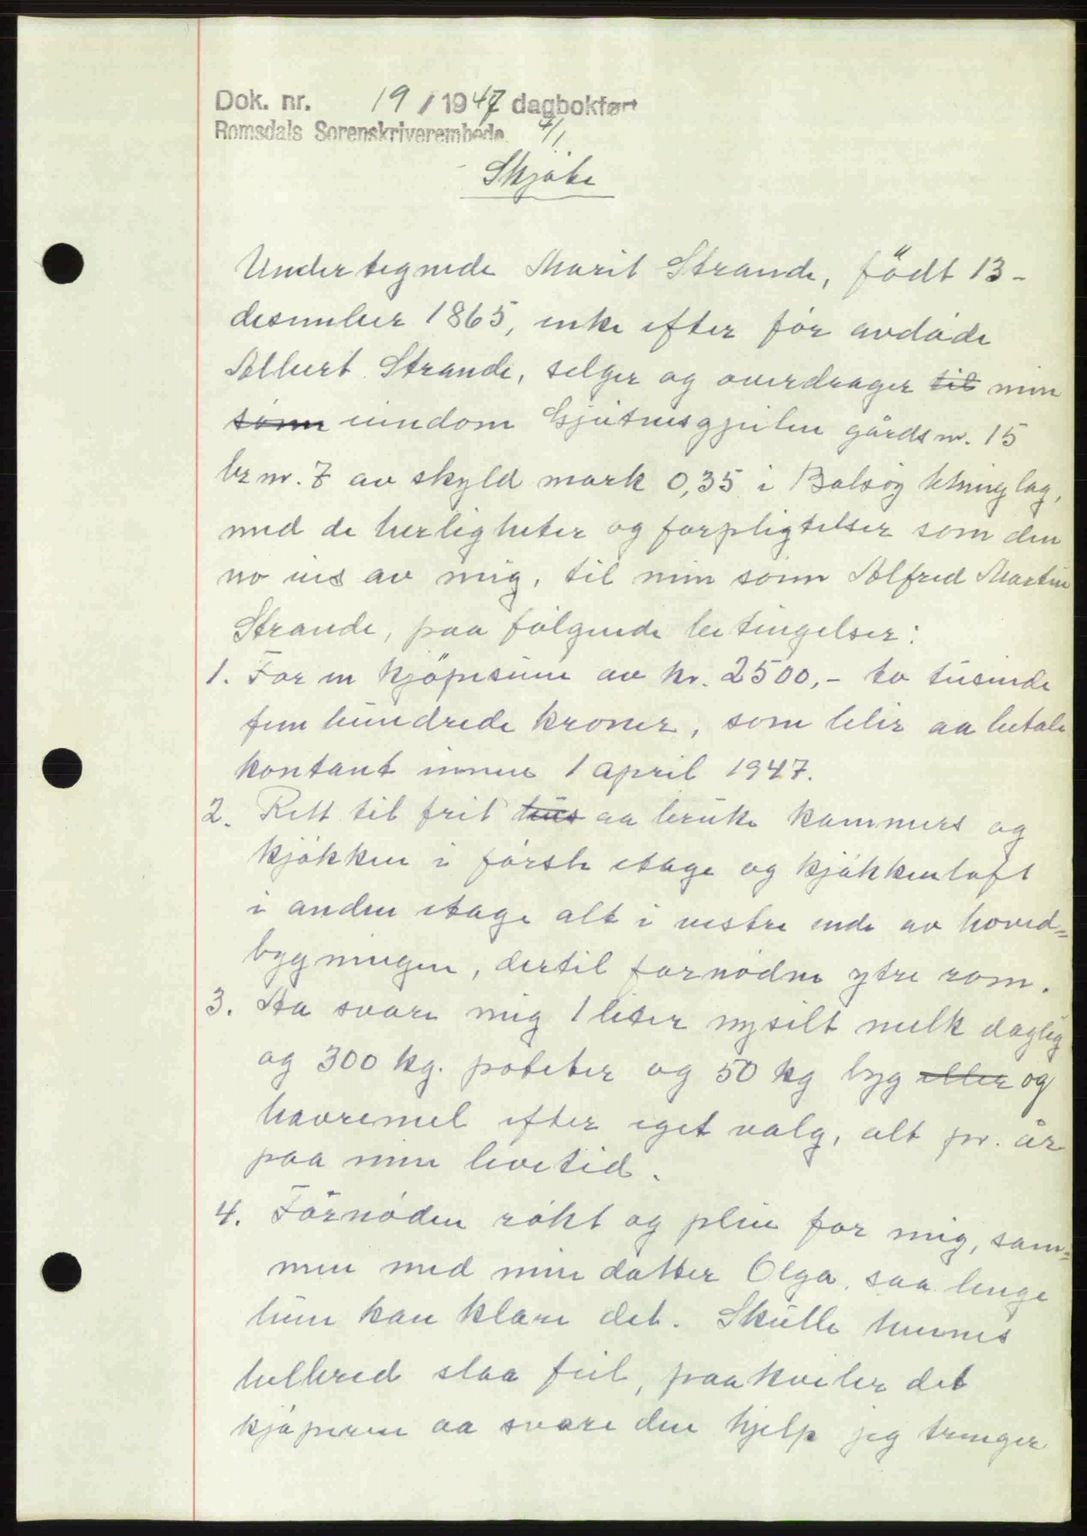 Dok. nr. 19 / 1947 dagbokført
Romsdals Sorenskriverembede 4/1
Skjöte
Undertegnede Marit Strande, födt 13-
desember 1865, enke efter før avdøde
Albert Strande, selger og overdrager til min
sønn eiendom Gjütnesgjeilen gårdsnr. 15
brnr. 7 av skyld mark 0,35 i Bolsøy tthinglag,
med de herligheter og forpligtelser som den
no eies av mig, til min sønn Alfred Martin
Strande, paa følgende betingelser:
1. For en kjöpesum av kr. 2500,- to tusinde
fem hundrede kroner, som blir aa betale
kontant innen 1 april 1947.
2. Rett til frit hus aa bruke kammers og
kjøkken i første etage og kjøkkenloft
i anden etage alt i vestre ende av hoved=
bygningen, dertil fornødne ytre rom.
3. Aa svare mig 1 liter nysilt melk daglig
og 300 kg. poteter og 50 kg byg eller og
havremel efter eget valg, alt pr. år
paa min levetid.
4. Førnøden røkt og pleie for mig, sam=
men med min datter Olga, saa lenge
hun kan klare det. Skulle hennes
helbred slaa feil, paakviler det
kjøperen aa svare den hjelp jeg trenger